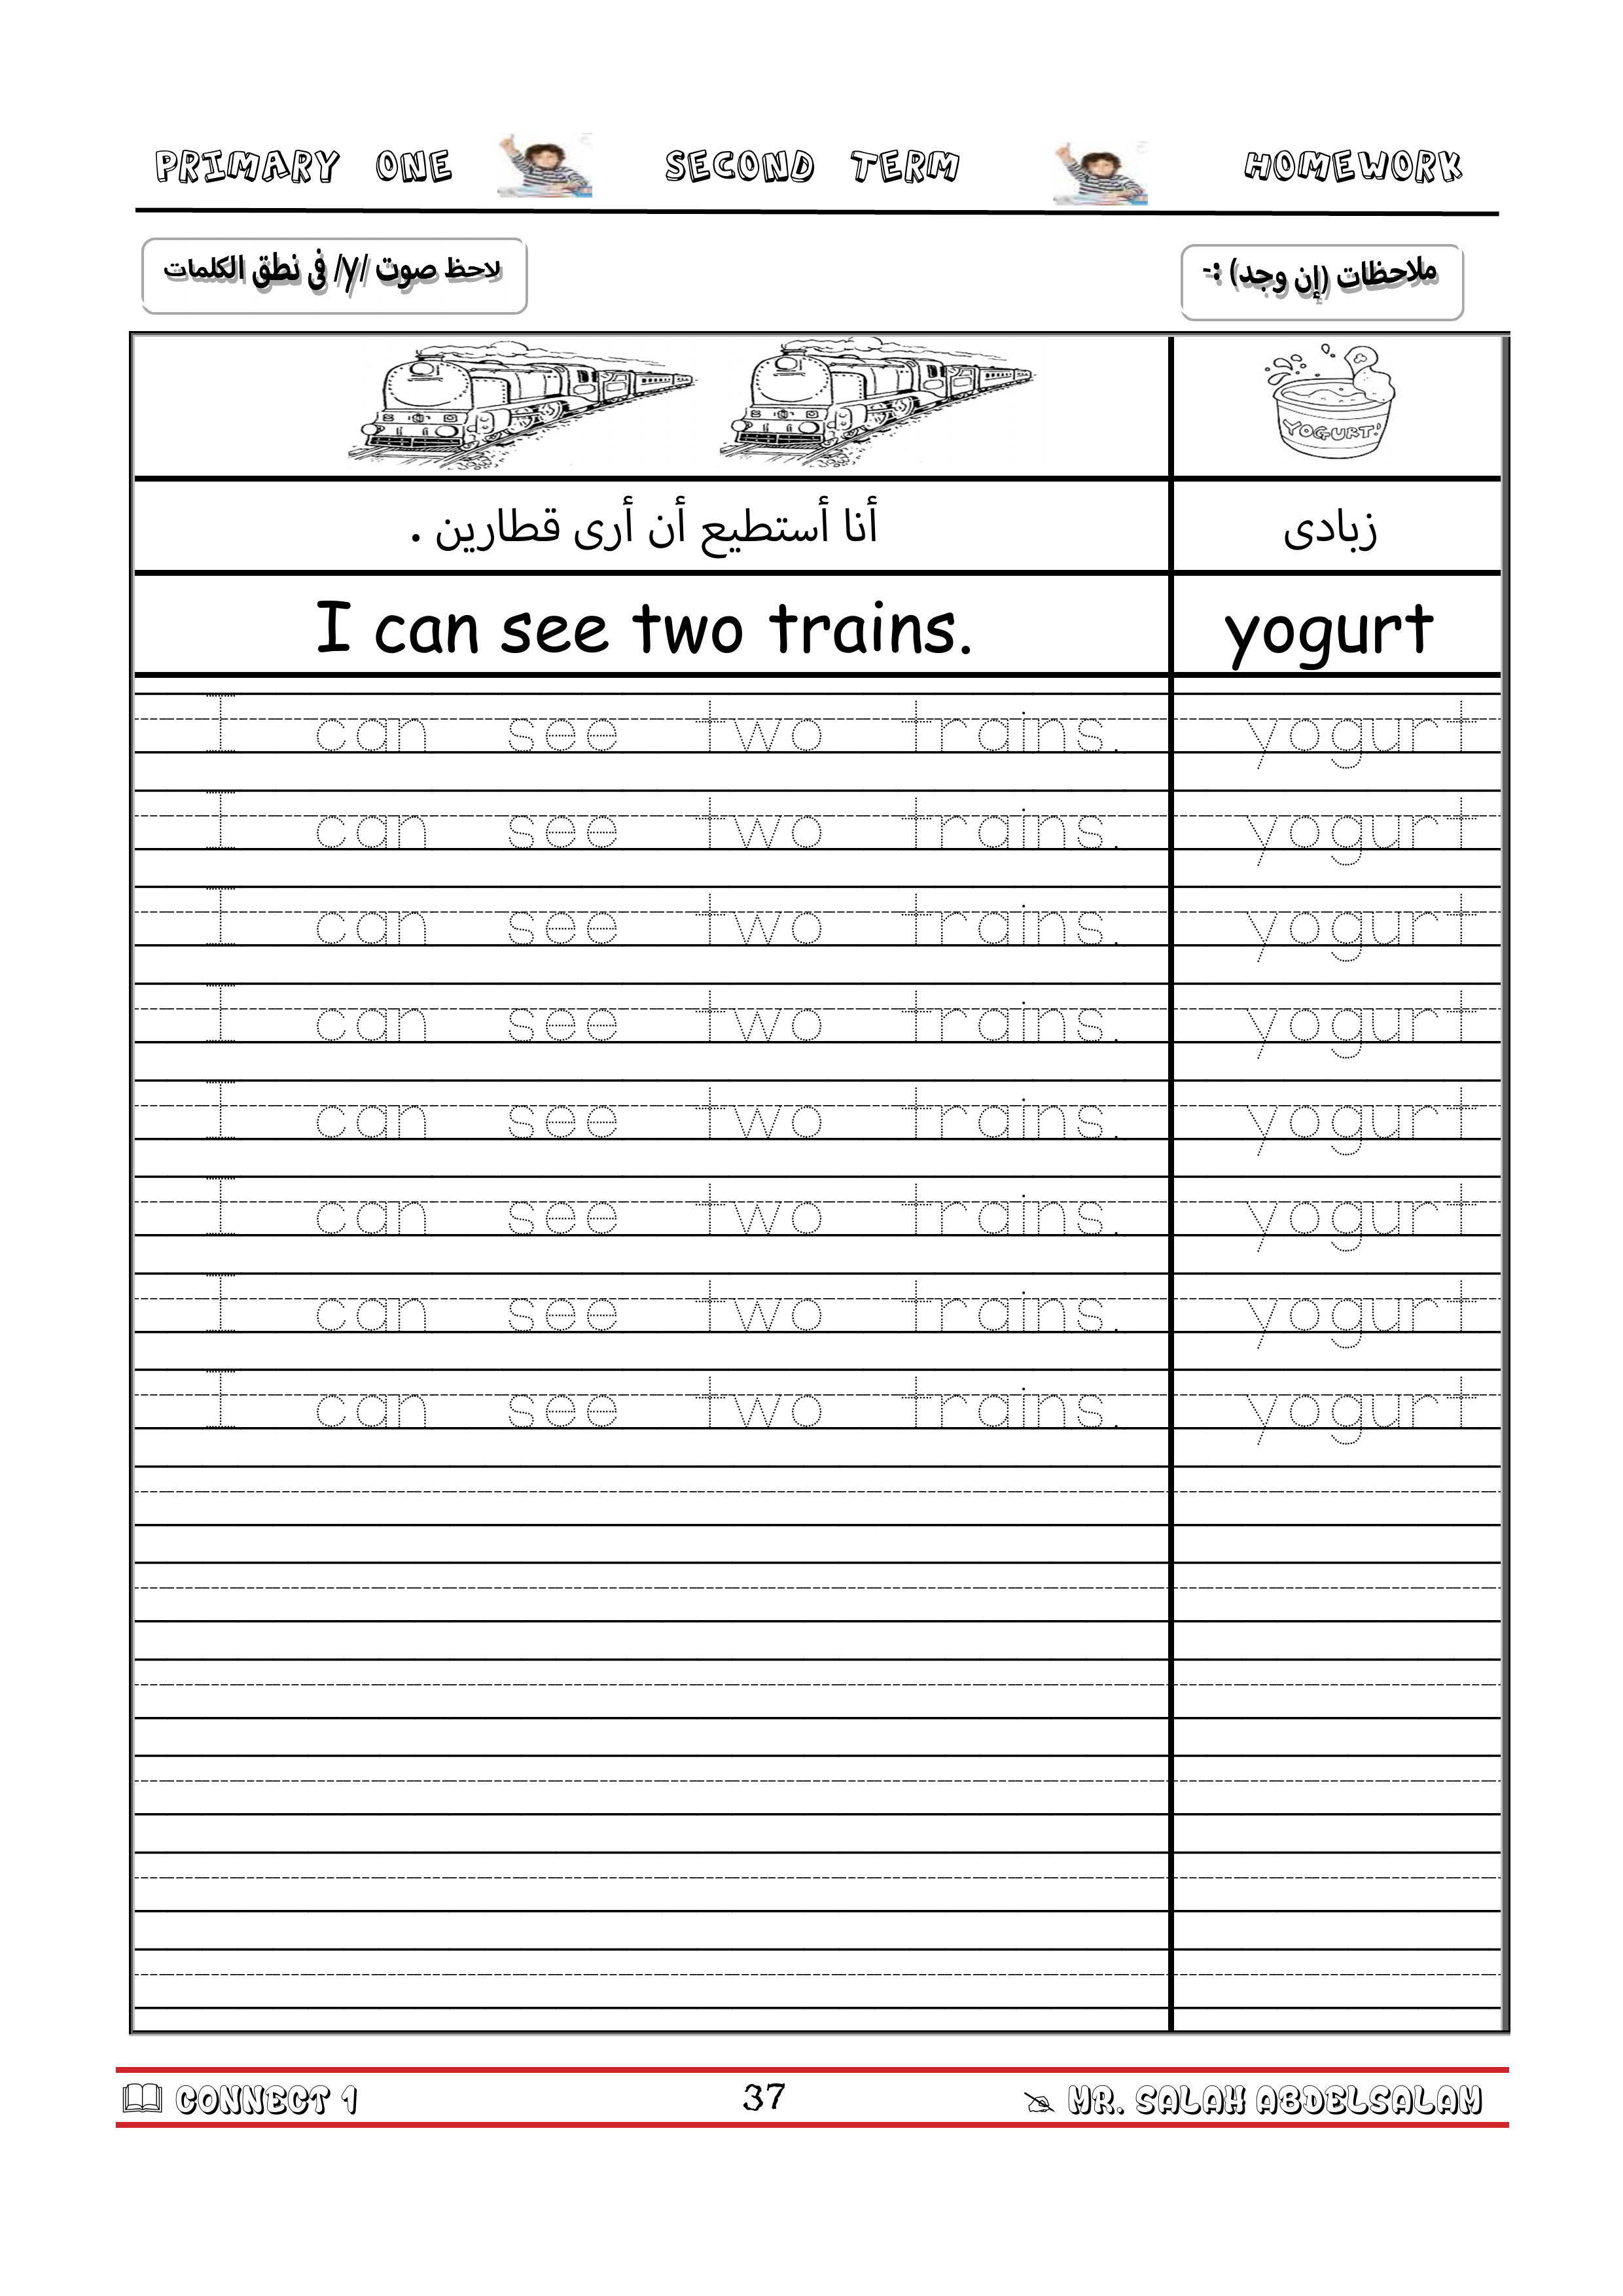 PRIMARY ONE SECOND TERM HOMEWORK
لاحظ صوت /y/ فى نطق الكلمات
ملاحظات (إن وجد) :-
YOGURT!
أنا أستطيع أن أرى قطارين .
زبادى
I can see two trains.
yogurt
I can see two trains. yogurt
I can see two trains. yogurt
I can see two trains. yogurt
I can see two trains. yogurt
I can see two trains. yogurt
I can see two trains. yogurt
I can see two trains. yogurt
I can see two trains. yogurt
CONNECT 1 37 MR. SALAH ABDELSALAM